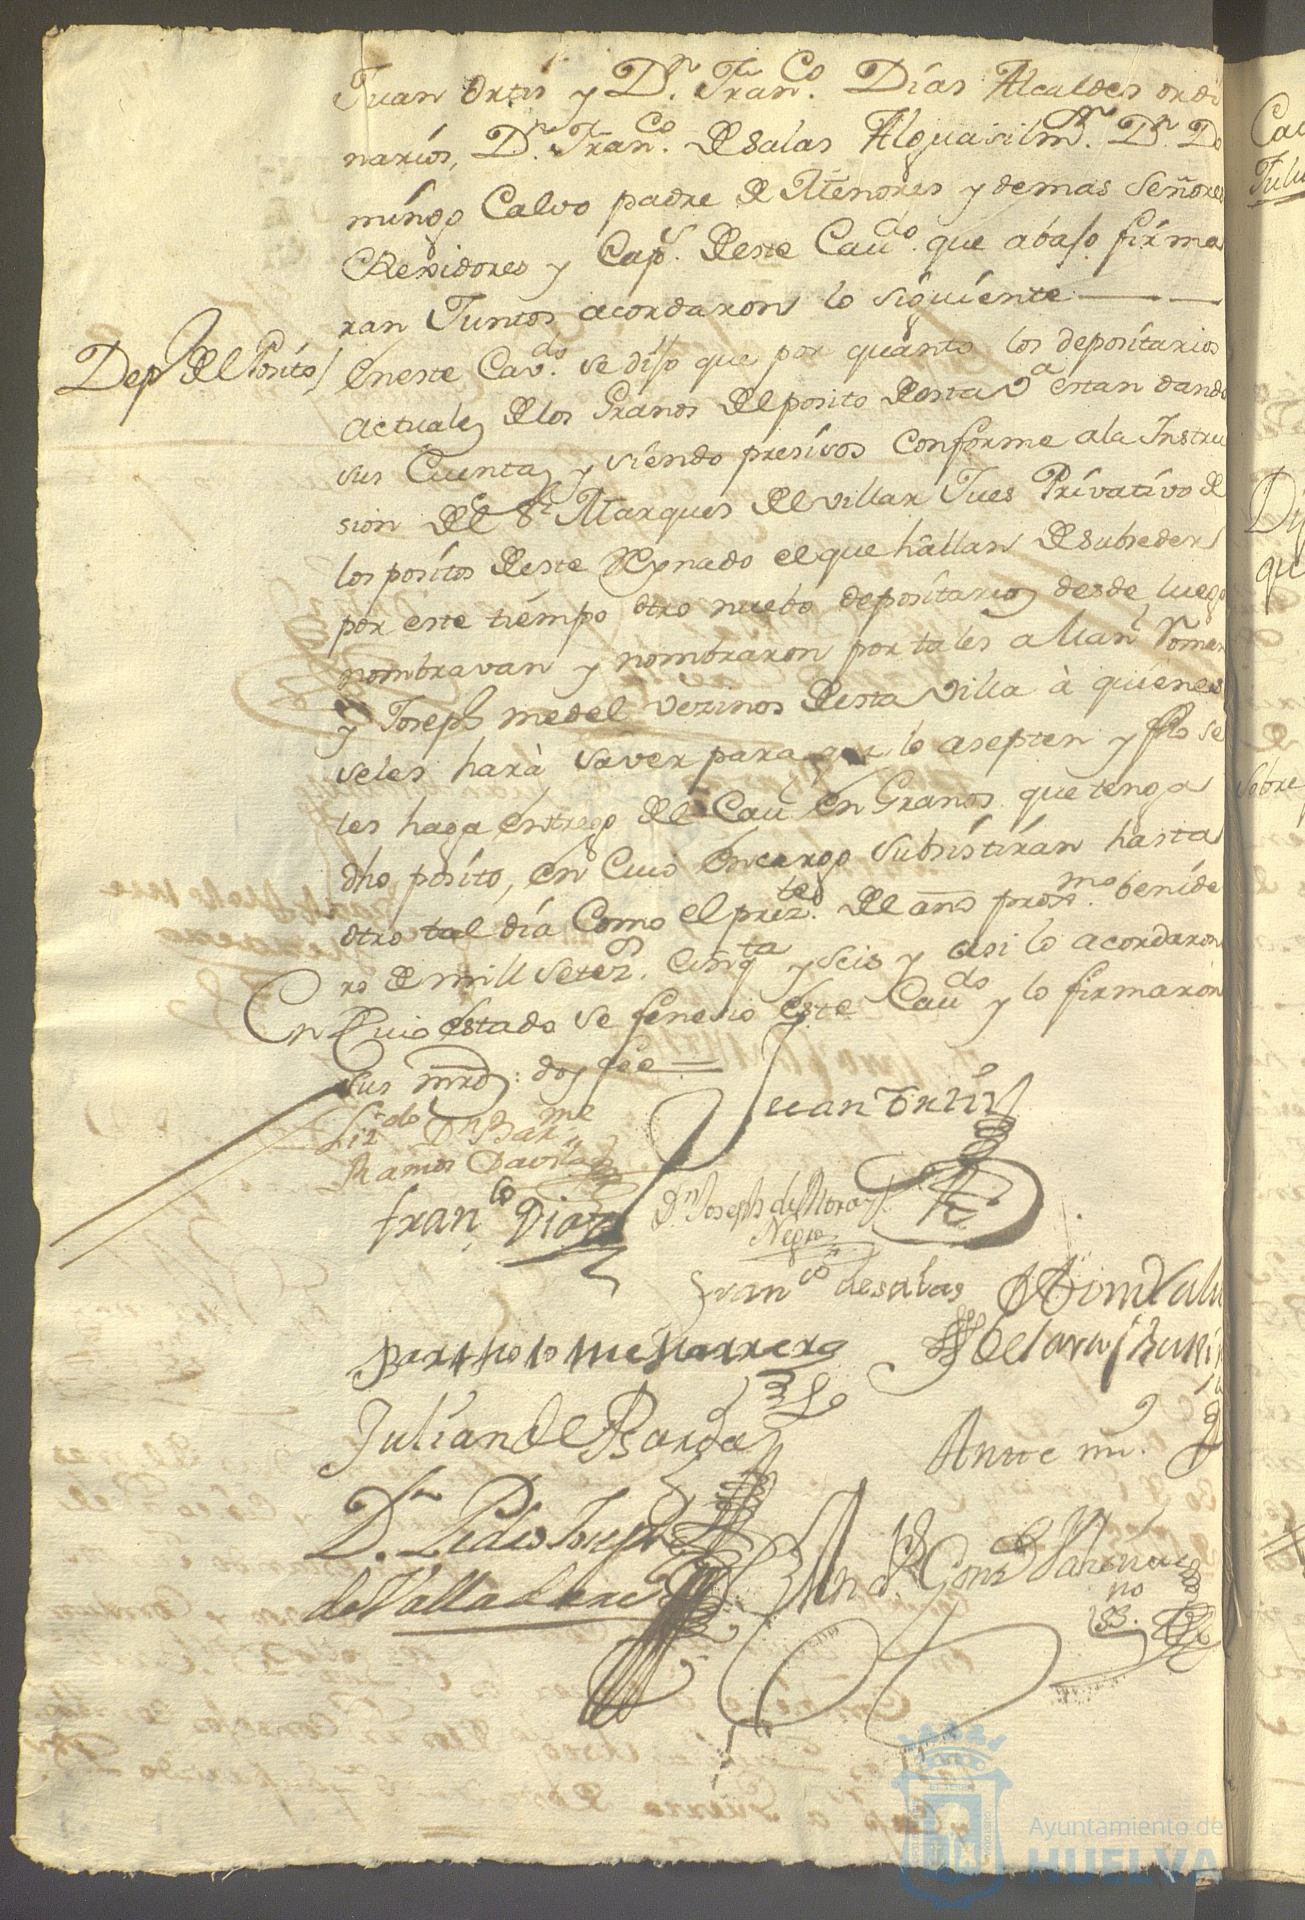 Juan Ortis y Dn. Franco. Días Alcaldes ordi
narios, Dn. Franco. de Salas Alguasil mr. Dn. Do
mingo Calvo padre de Menores y demas Señores
Rexidores y Capl. deeste Caudo. que abajo firma
ran Juntos acordaron lo siguiente
Depo. del Posito / Eneste Cavdo. se dijo que por quanto los depositarios
actuales de los Granos del posito desta Va estan dando
sus Cuentas y siendo presisos conforme a la Instru
sion del Sr. Marques del villar Jues Privativo de
los positos deeste Reynado el que hallan de subseder
por este tiempo otro nuebo depositario desde luego
nombravan y nombraron por tales a Manl
y Joseph medel vezinos desta Villa à quienes
seles harà saver para que lo asepten y se
les haga entrego del Cau en Granos que tenga
dho posito, en Cuio encargo subsistirán hasta
otro tal día como el prezte. del año proxmo. benide
ro de mill setezs. cinqta y seis y asi lo acordaron
En Cuio estado se fenesio este Caudo y lo firmaron
sus mrds. doy fee =
Juan Ortiz
Lizdo Dn Barme
Ramos Davila
Franco Diaz
Dn Joseph de Mora
Negro
Franco de salas
Bartholome Marrero
Julian de Barda
Ante mi.
Dn. Pedro Joseph
de Valladares
Gonz
no
Ayuntamiento de
HUELVA